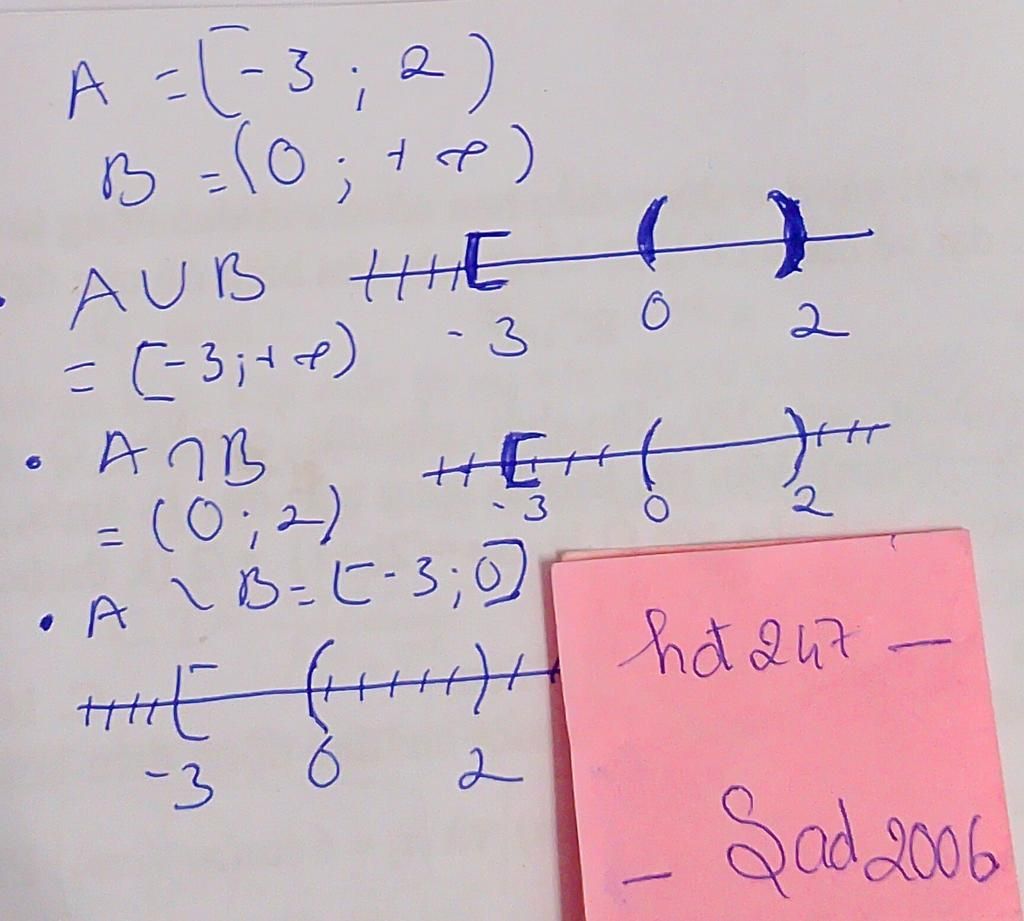 A = [-3 ; 2)
B = (0 ; +∞)
• A ∪ B
-3 0 2
= [-3 ; +∞)
• A ∩ B
-3 0 2
= (0 ; 2)
• A \ B = [-3 ; 0]
-3 0 2
hdt 247 —
— Sad2006